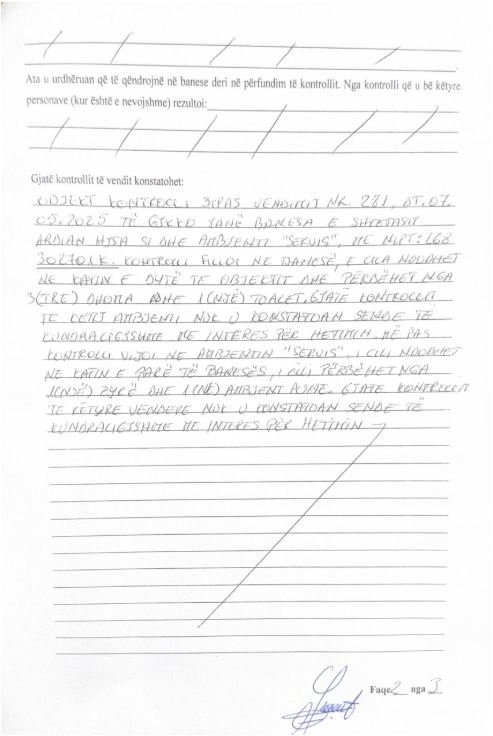 Ata u urdhëruan që të qëndrojnë në banese deri në përfundim të kontrollit. Nga kontrolli që u bë këtyre
personave (kur është e nevojshme) rezultoi:
Gjatë kontrollit të vendit konstatohet:
OBJEKT KONTROLLI SIPAS VENDIMIT NR. 281, DT. 07.
05.2025 TË GJKKO JANË BANESA E SHTETASIT
ARDIAN HISA SI DHE AMBJENTI "SERVIS", ME NIPT: L68
302701K. KONTROLLI FILLOI NE BANESË, E CILA NDODHET
NE KATIN E DYTË TE OBJEKTIT DHE PËRBËHET NGA
3(TRE) DHOMA DHE 1(NJË) TOALET. GJATË KONTROLLIT
TE KETIJ AMBJENTI NUK U KONSTATUAN SENDE TË
KUNDRALIGJSHME ME INTERES PËR HETIMIN. MË PAS
KONTROLLI VIJOI NE AMBJENTIN "SERVIS", I CILI NDODHET
NE KATIN E PARË TË BANESËS, I CILI PËRBËHET NGA
1(NJË) ZYRË DHE 1(NJË) AMBJENT PUNE. GJATE KONTROLLIT
TE KËTYRE VENDEVE NUK U KONSTATUAN SENDE TË
KUNDRALIGJSHME ME INTERES PËR HETIMIN
Faqe 2 nga 3